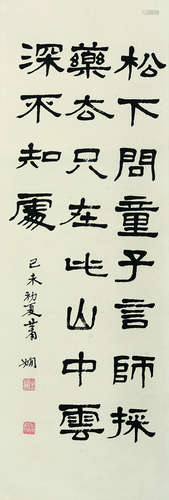 松下問童子言師採
藥去只在此山中雲
深不知處
己未初夏蕭嫻